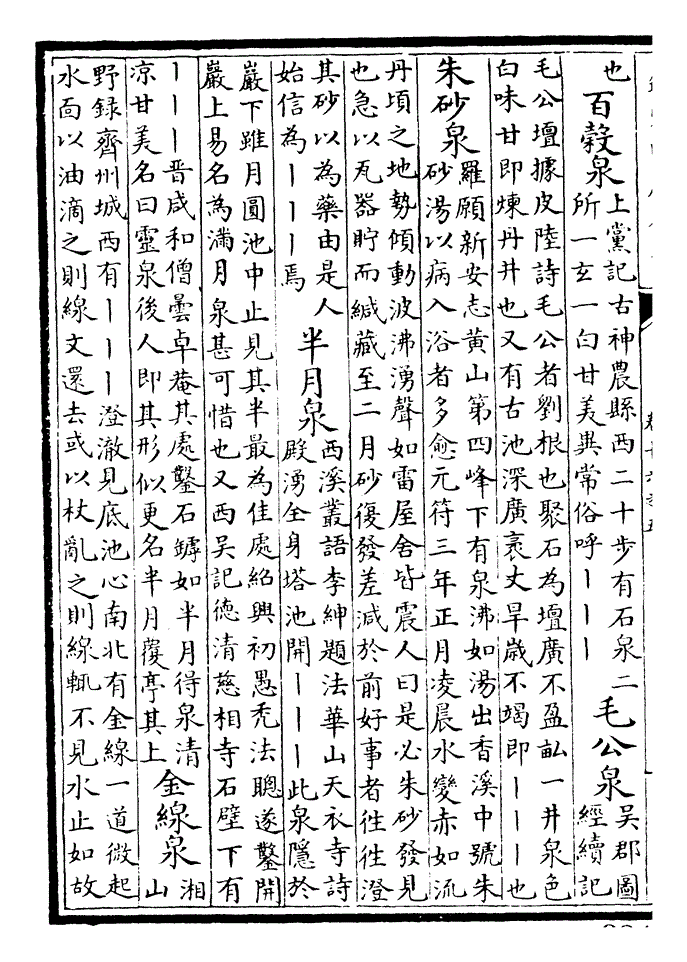 也
百穀泉
上黨記古神農縣西二十步有石泉二
所一玄一白甘美異常俗呼｜｜｜
毛公泉
吳郡圖
經續記
毛公壇據皮陸詩毛公者劉根也聚石為壇廣不盈畆一井泉色
白味甘即煉丹井也又有古池深廣袤丈旱歲不竭即｜｜｜也
朱砂泉
羅願新安志黄山第四峰下有泉沸如湯出香溪中號朱
砂湯以病入浴者多愈元符三年正月凌晨水變赤如流
丹頃之地勢傾動波沸湧聲如雷屋舍皆震人曰是必朱砂發見
也急以瓦器貯而緘藏至二月砂復發差減於前好事者徃徃澄
其砂以為藥由是人
始信為｜｜｜焉
半月泉
西溪叢語李紳題法華山天衣寺詩
殿湧全身塔池開｜｜｜此泉隱於
巖下雖月圓池中止見其半最為佳處紹興初愚禿法聰遂鑿開
巖上易名為滿月泉甚可惜也又西吳記德清慈相寺石壁下有
｜｜｜晋咸和僧曇卓菴其處鑿石罅如半月得泉清
涼甘美名曰靈泉後人即其形似更名半月覆亭其上
金線泉
湘
山
野録齊州城西有｜｜｜澄澈見底池心南北有金線一道微起
水面以油滴之則線文還去或以杖亂之則線輒不見水止如故